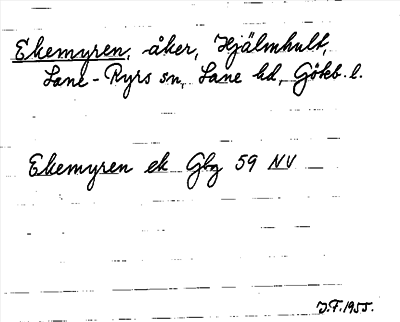 Ekemyren, åker, Hjälmhult,
Lane-Ryrs sn, Lane hd, Gökb. l.
Ekemyren ek Gbg 59 NV
J.F. 1955.